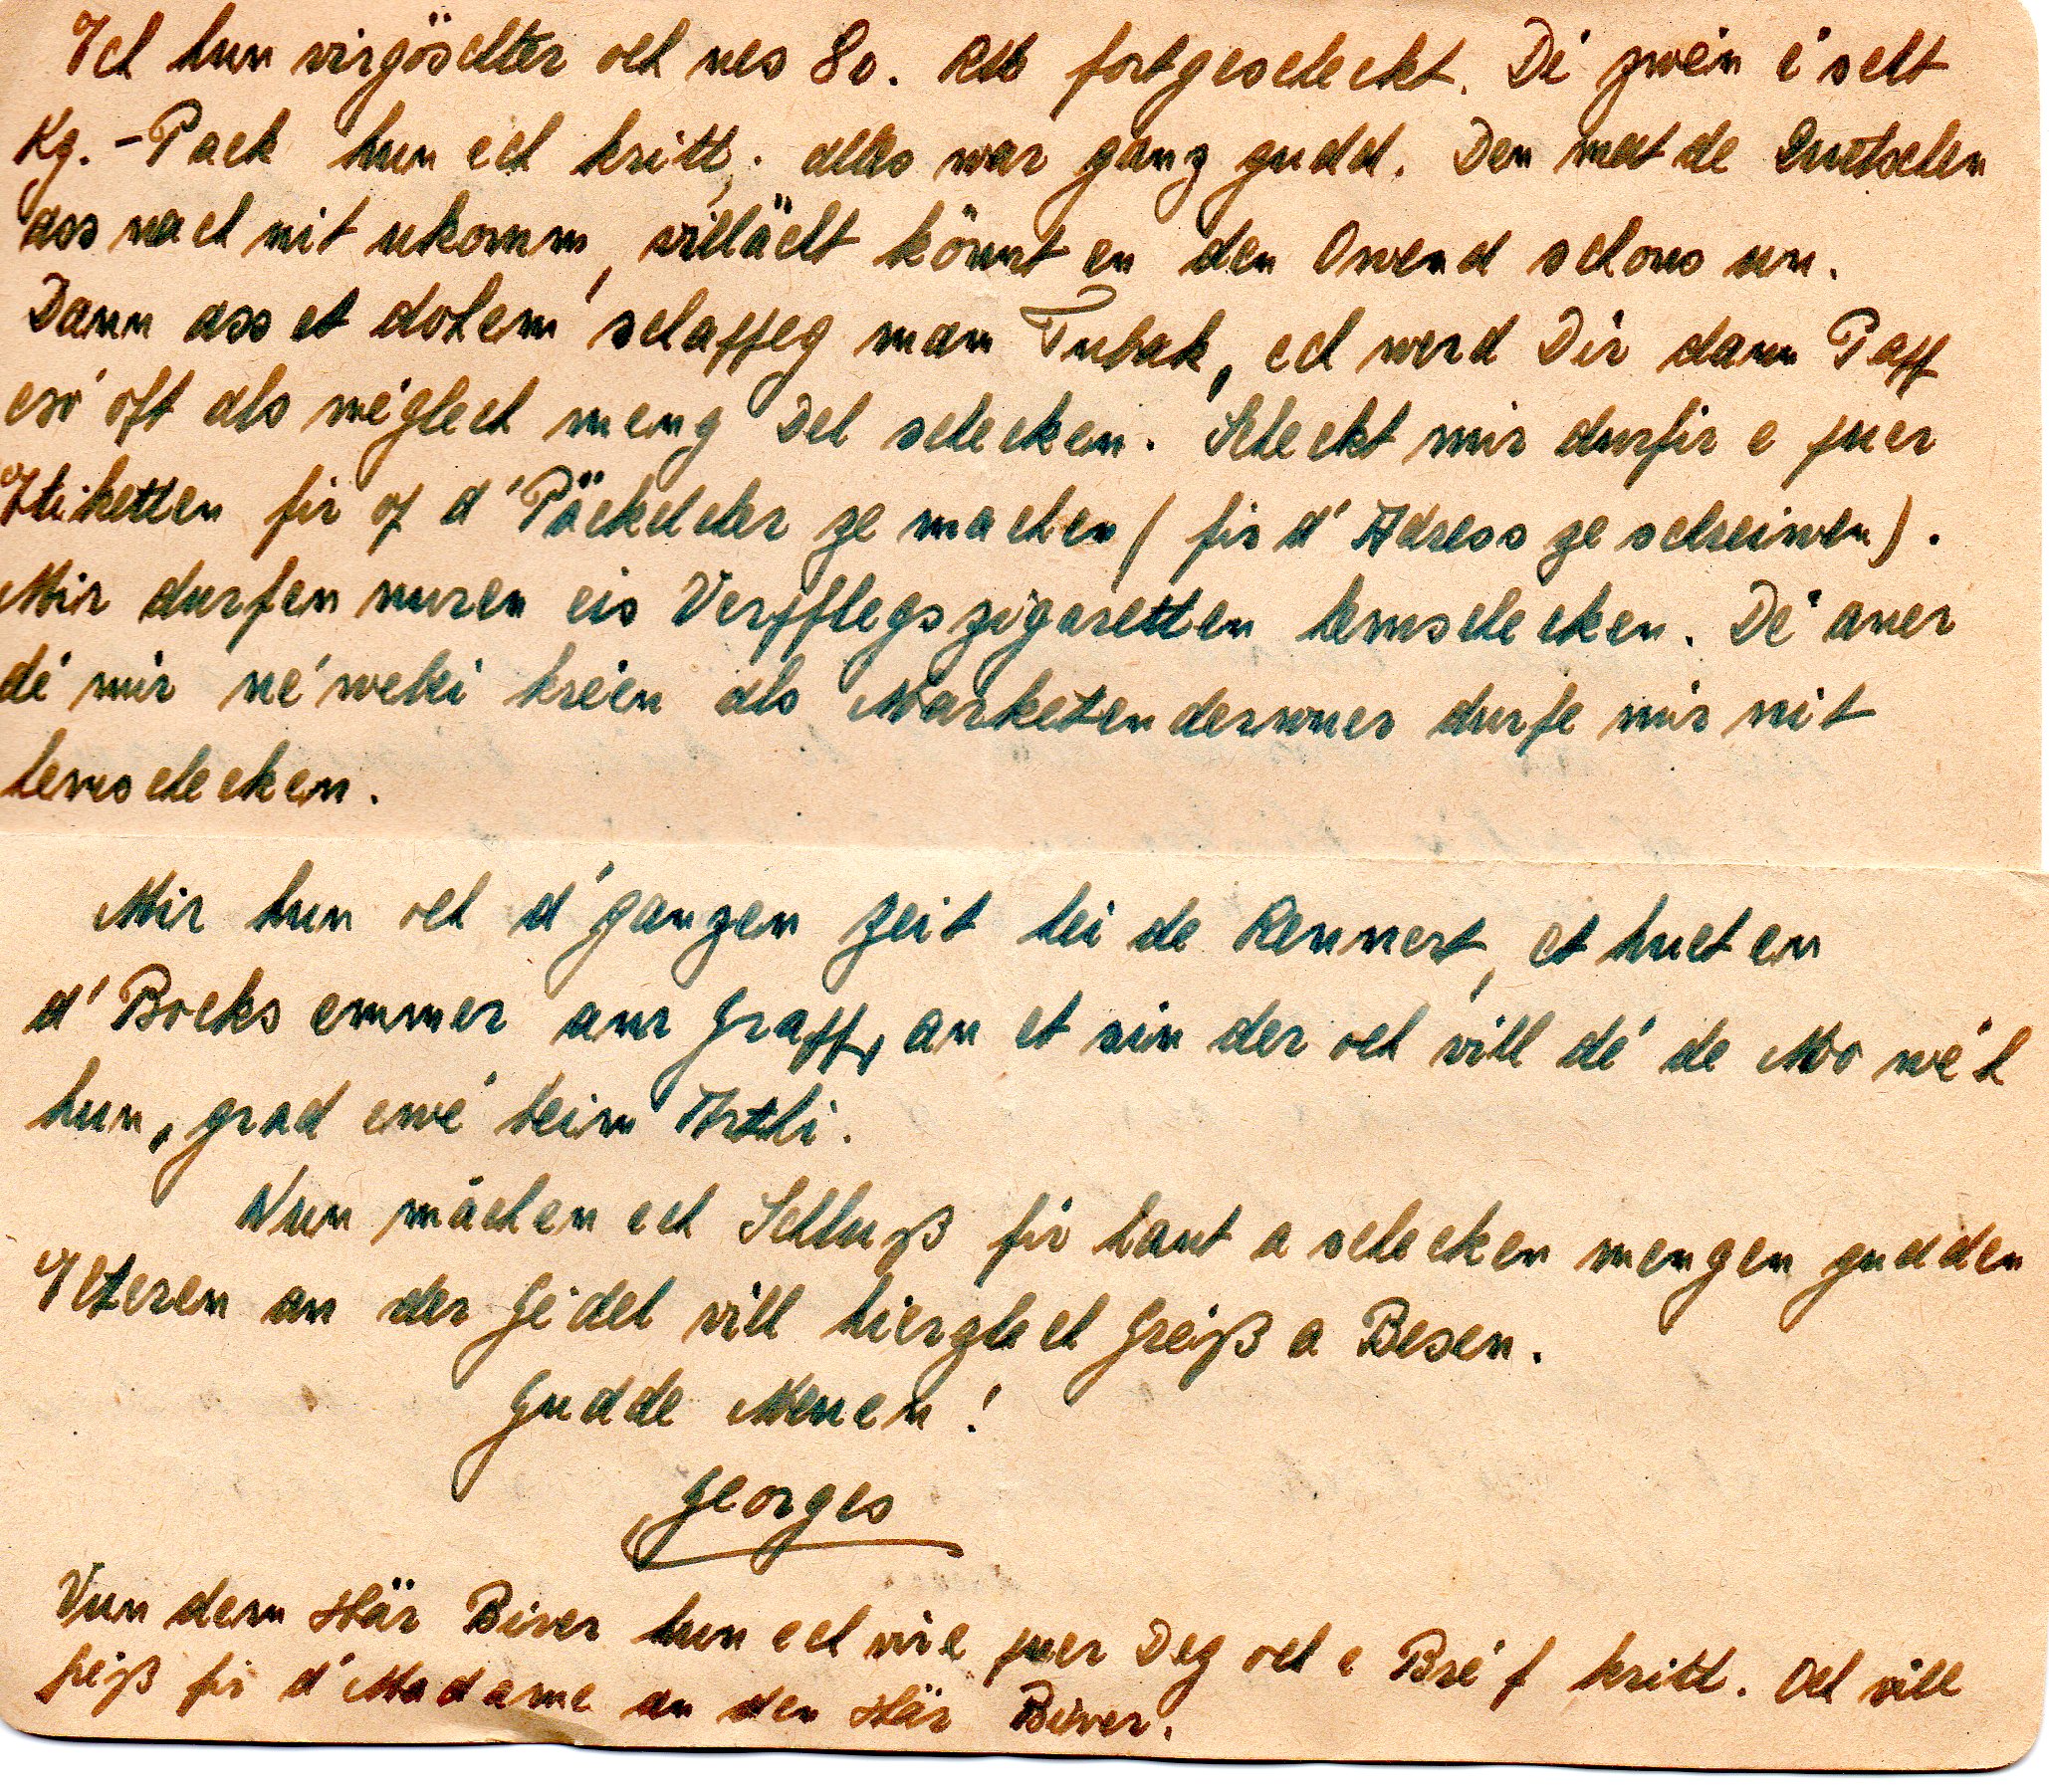 Ech hun virgöschter och nes 80. RM fortgescheckt. Dé zwén é'scht
Kg.-Pack hun ech kritt, alles war ganz gudd. Den mat de Quetschen
ass nach nit ukomm, villächt könnt en den Owend schons un.
Dann ass et dohém schaffeg mam Tubak, ech werd Dir dann Papp
esó oft als méglech meng Del schecken. Scheckt mir durfir e puer
Etiketten fir of d'Päckelcher ze machen (fir d'Adress ze schreiwen).
Mir durfen nuren eis Verpflegszigaretten hemschecken. Dé aner
dé mir néwebei kréen als Marketenderwuer durfe mir nit
hemschecken.
Mir hun och d'ganzen Zeit hei de Rennert, et huet en
d'Bocks emmer am Graff, an et sin der och vill dé de Mo wéh
hun, grad ewé beim Arthi.
Nun máchen ech Schluß fir haut a schecken mengen gudden
Elteren an der Gédel vill hierzlech Gréiß a Besen.
Gudde Menen!
Georges
Vun dem Här Biver hun ech vire puer Deg och e Bréf kritt. Och vill
Gréiß fir d'Madame an den Här Biver.